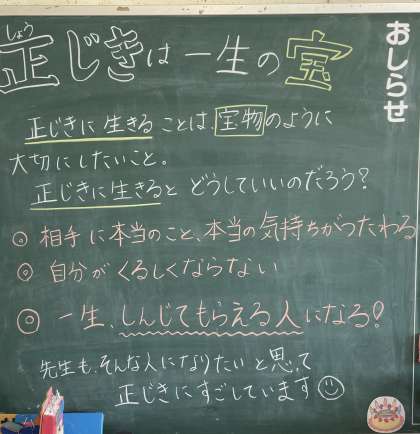 おしらせ
しょう
正じきは一生の宝
正じきに生きることは、宝物のように
大切にしたいこと。
正じきに生きると どうしていいのだろう?
◎ 相手に本当のこと、本当の気持ちがつたわる
◎ 自分がくるしくならない
◎ 一生、しんじてもらえる人になる!
先生も、そんな人になりたいと思って
正じきにすごしています